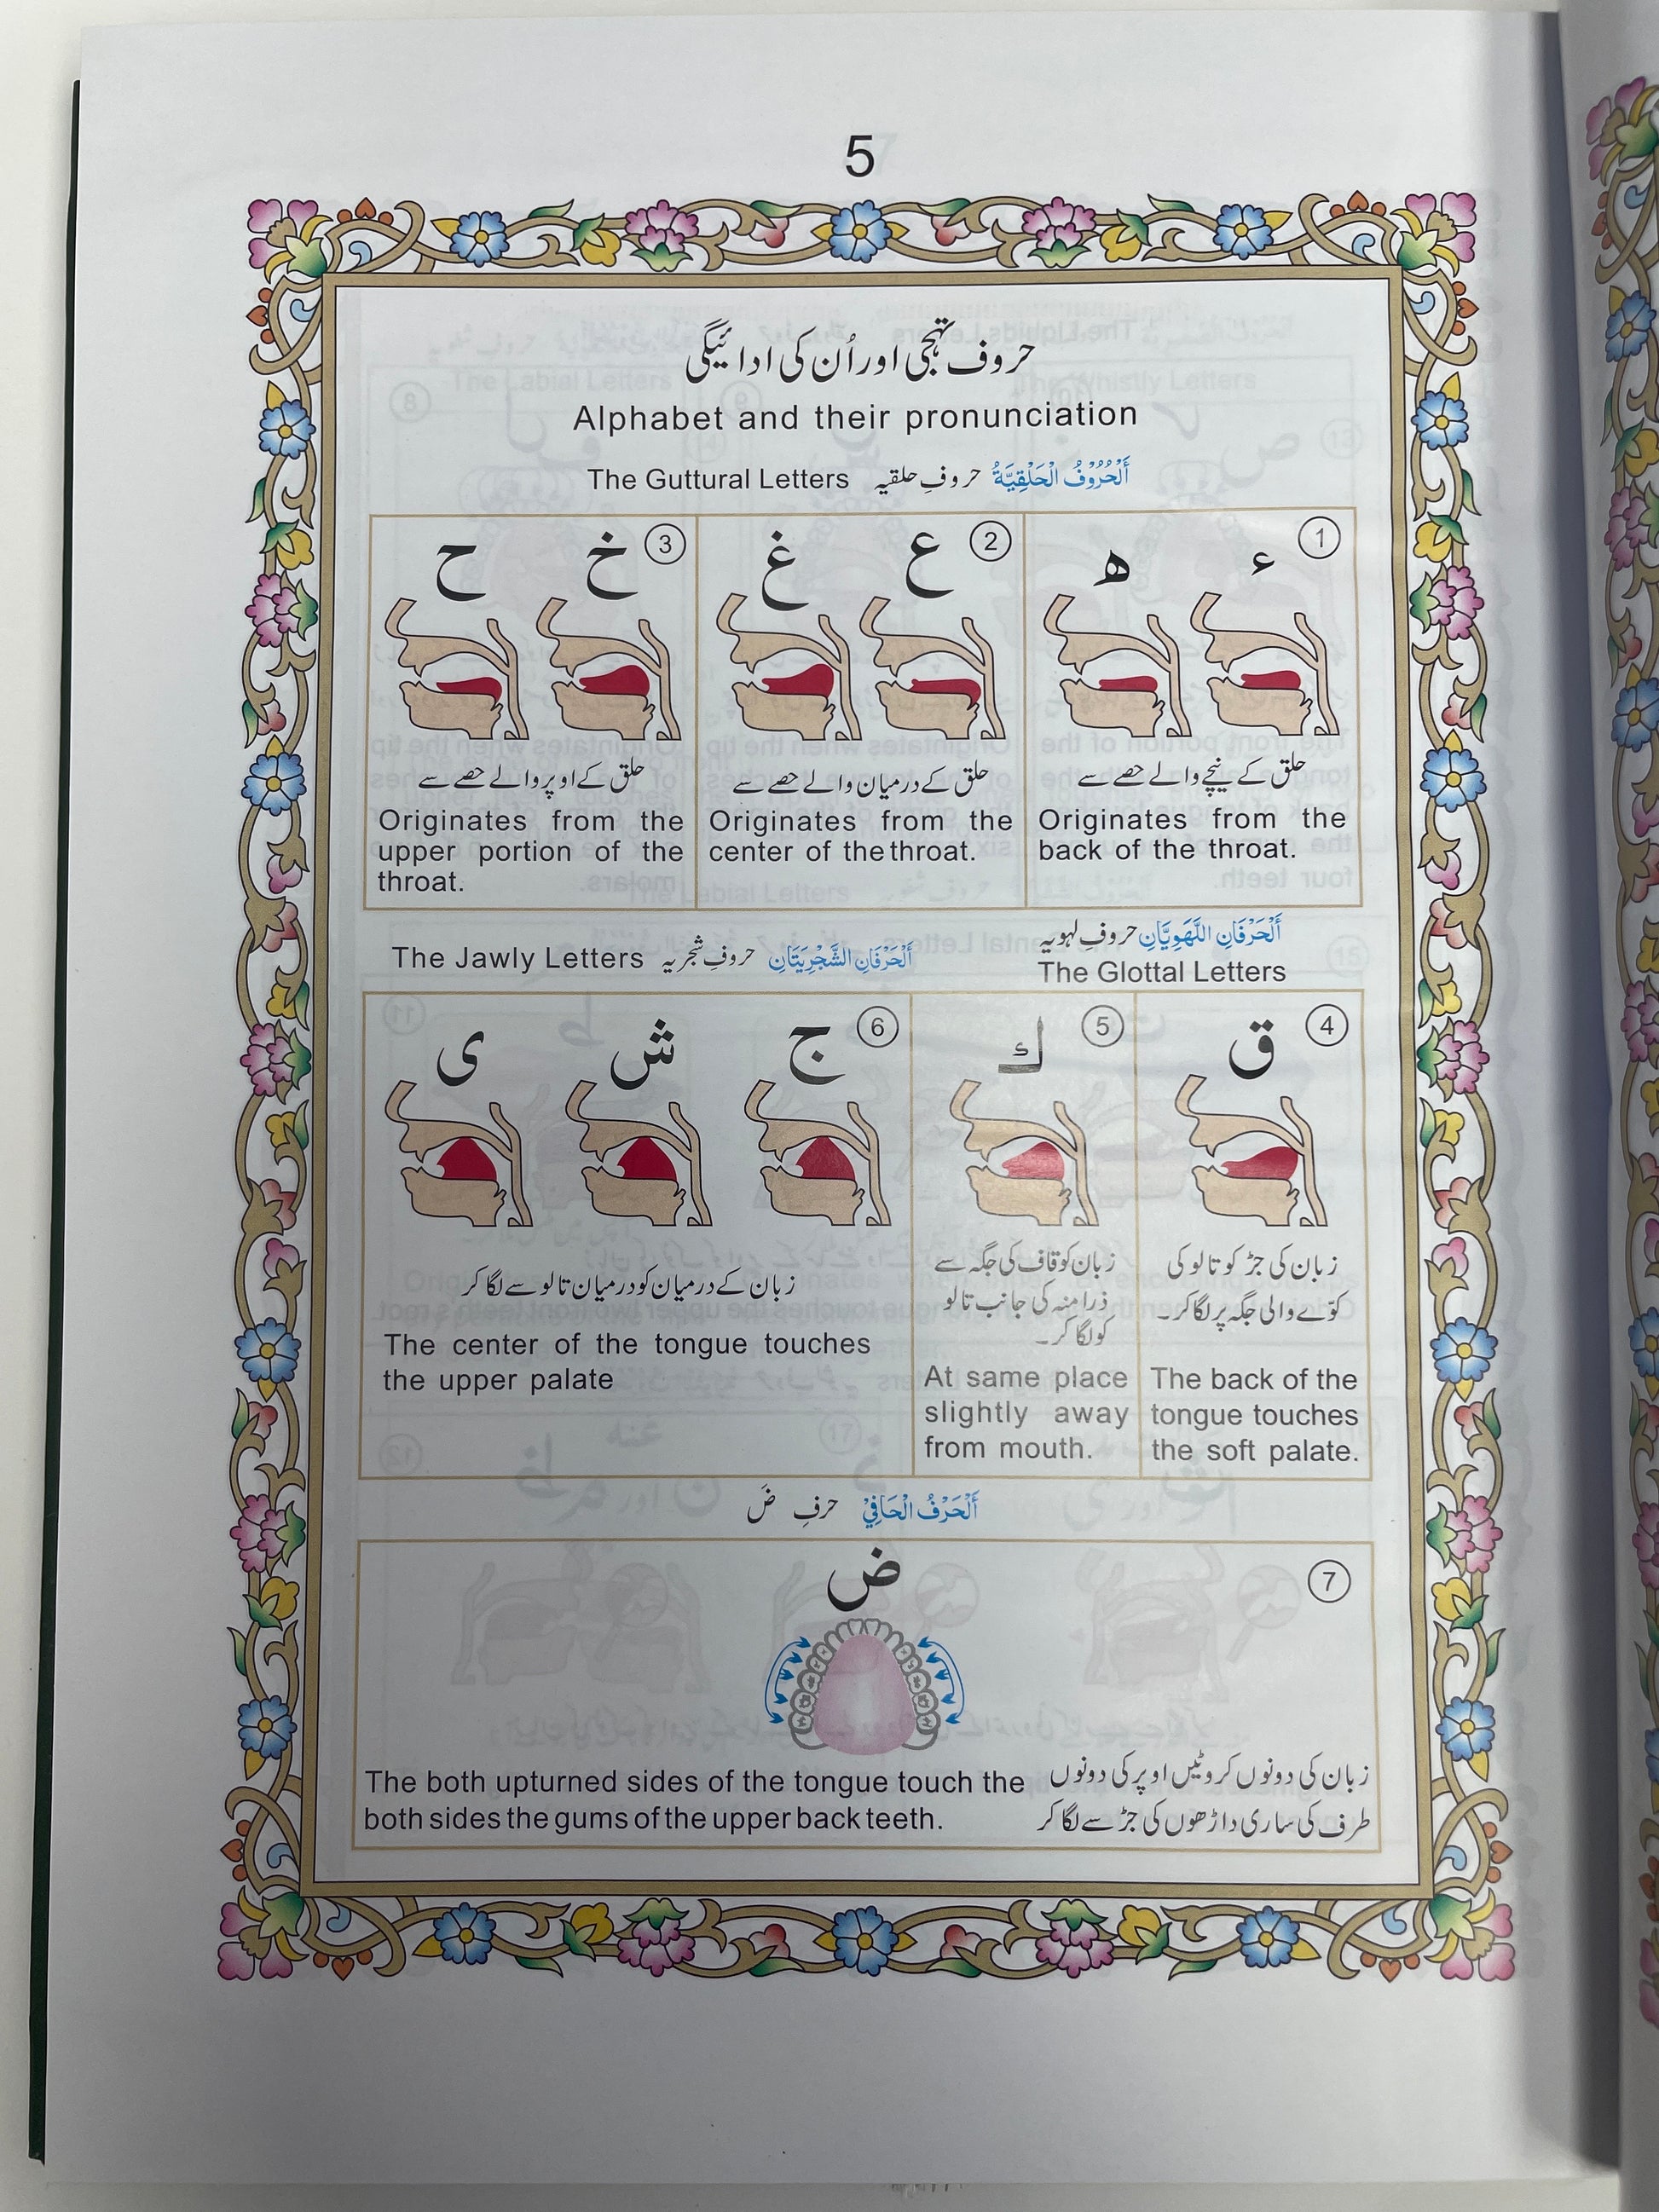 5
حروف تہجی اور اُن کی ادائیگی
Alphabet and their pronunciation
The Guttural Letters حروفِ حلقیہ اَلْحُرُوْفُ الْحَلْقِيَّةُ
1
ء ه
حلق کے نیچے والے حصے سے
Originates from the
back of the throat.
2
ع غ
حلق کے درمیان والے حصے سے
Originates from the
center of the throat.
3
خ ح
حلق کے اوپر والے حصے سے
Originates from the
upper portion of the
throat.
اَلْحَرْفَانِ اللَّهَوِيَّانِ حروفِ لہویہ
The Glottal Letters
The Jawly Letters حروفِ شجریہ اَلْحَرْفَانِ الشَّجْرِيَتَانِ
4
ق
زبان کی جڑ کو تالو کی
کوّے والی جگہ پر لگا کر۔
The back of the
tongue touches
the soft palate.
5
ك
زبان کو قاف کی جگہ سے
ذرا منہ کی جانب تالو
کو لگا کر۔
At same place
slightly away
from mouth.
6
ج ش ى
زبان کے درمیان کو درمیان تالو سے لگا کر
The center of the tongue touches
the upper palate
اَلْحَرْفُ الْحَافِيْ حرفِ ضَ
7
ض
زبان کی دونوں کروٹیں اوپر کی دونوں
طرف کی ساری داڑھوں کی جڑ سے لگا کر
The both upturned sides of the tongue touch the
both sides the gums of the upper back teeth.